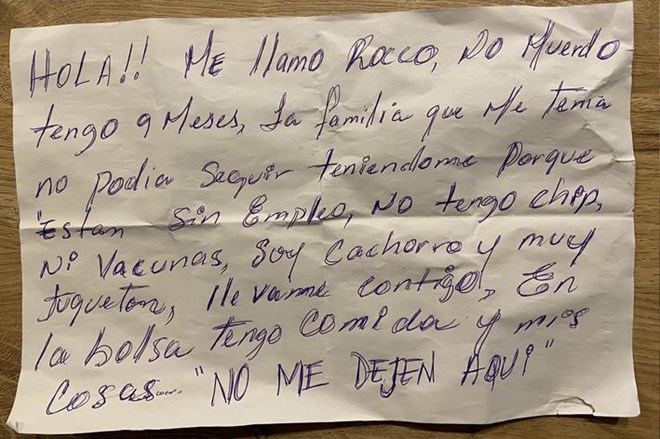 HOLA!! ME llamo Rocco, No Muerdo
tengo 9 Meses, La familia que Me tenia
no podia seguir teniendome Porque
Estan Sin Empleo, No tengo chip,
Ni Vacunas, Soy Cachorro y muy
Jugueton, llevame contigo, En
la bolsa tengo comida y mis
cosas.... "NO ME DEJEN AQUI"